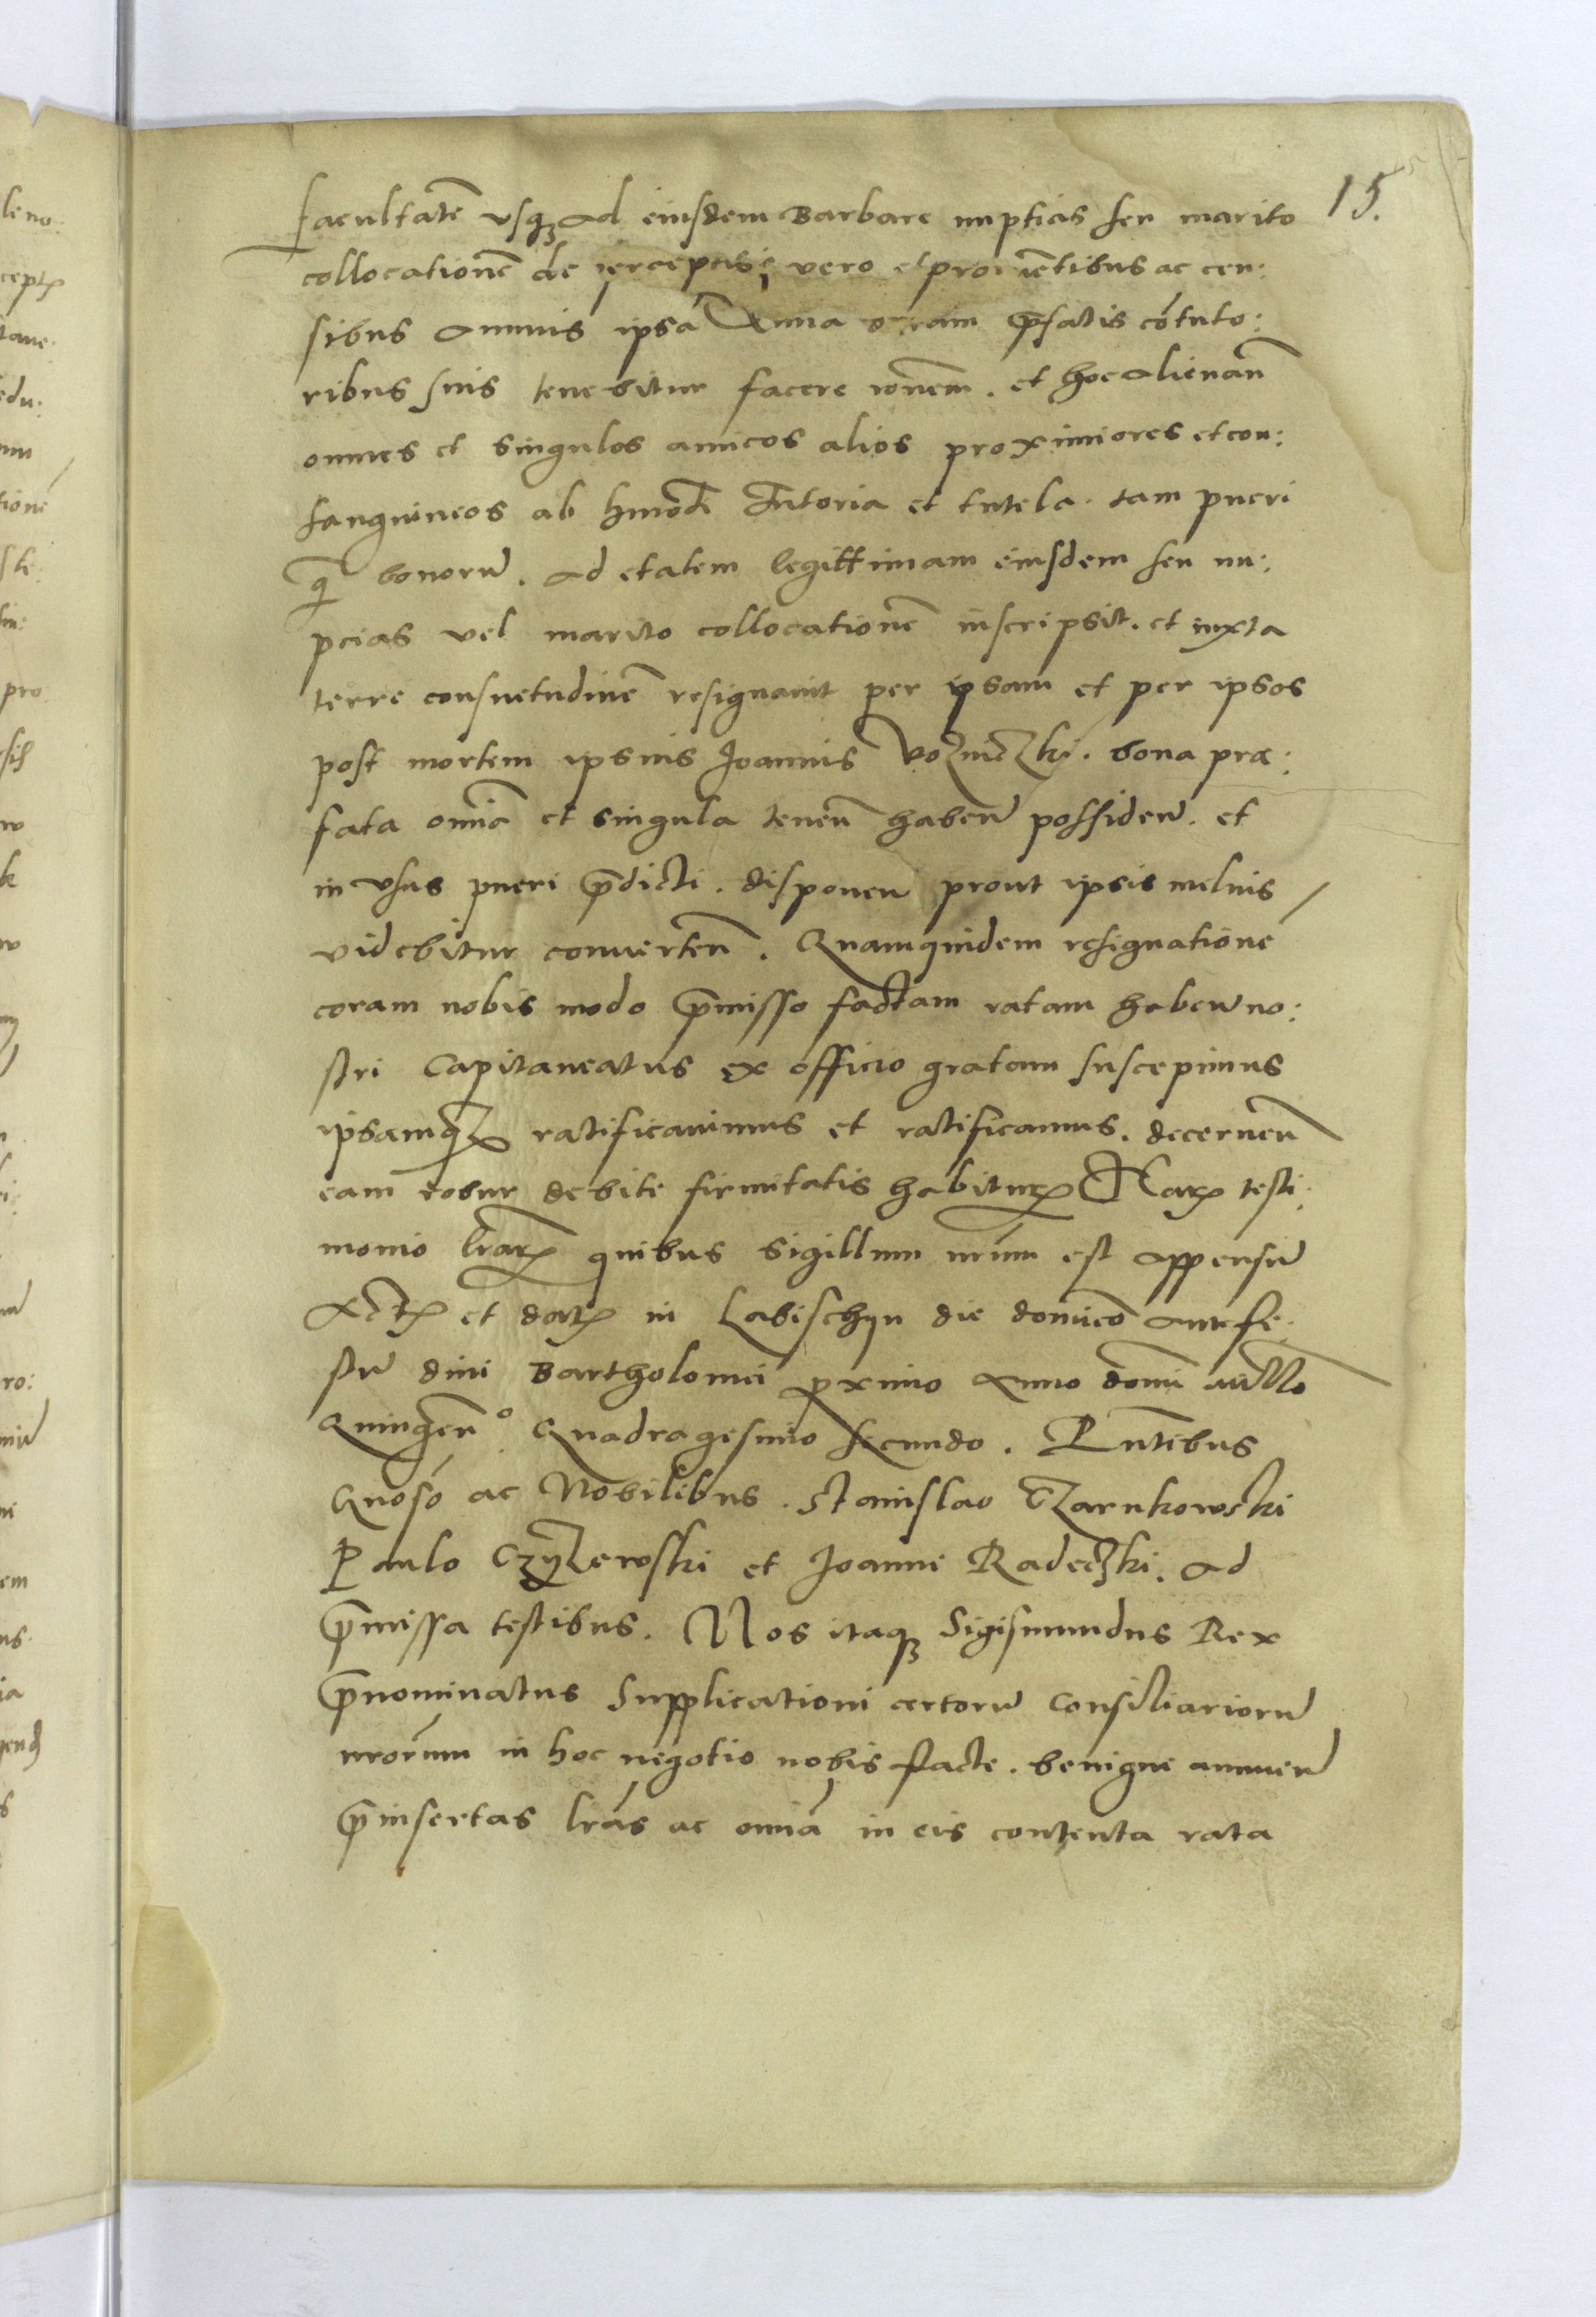 15.
facultatē vsq₃ ad eiusdem Barbare nupticas seu marito
collocationē de perceptis vero et prouētibus ac cen:
sibus annuis ipsa Anna coram p̄fatis cōtuto:
ribus suis tenebitur facere rōnem. et hoc alienan̄
omnes et singulos amicos alios proximiores et con:
sanguineos ab hmōdi tutoria et tutela. tam pueri
q̄ bonorū. ad etatem legittimam eiusdem seu nu:
pcias vel marito collocationē inscripsit. et iuxta
terre consuetudinē resignauit per ipsam et per ipsos
post mortem ipsius Joannis bona præ:
fata omīa et singula tenen̄ haben̄ possiden̄. et
in vsus pueri p̄dicti. disponen̄ prout ipsis melius
videbitur conuerten̄. Quamquidem resignationē
coram nobis modo p̄misso factam ratam haben̄ no:
stri Capitaneatus ex officio gratam suscepimus
ipsamq₃ ratificauimus et ratificamus. decernen̄
eam robur debite firmitatis habiturꝫ Harꝫ testi:
monio lrārꝫ quibus sigillum nrūm est appensū
Actꝫ et datꝫ in Labischyn die domīco ante fe:
stū diui Bartholomei proximo Anno domī mīllo
Quingen̄º Quadragesimo secundo. Pn̄tibus
Gnōso ac Nobilibus. Stanislao Czarnkowski
Paulo Czyzewski et Joanne Radeczki. ad
p̄missa testibus. Nos itaq₃ Sigismundus Rex
p̄nominatus Supplicationi certorū Consiliariorū
nrōrum in hoc negotio nobis facte. benigne annuen̄
p̄insertas lrās ac omīa in eis contenta rata